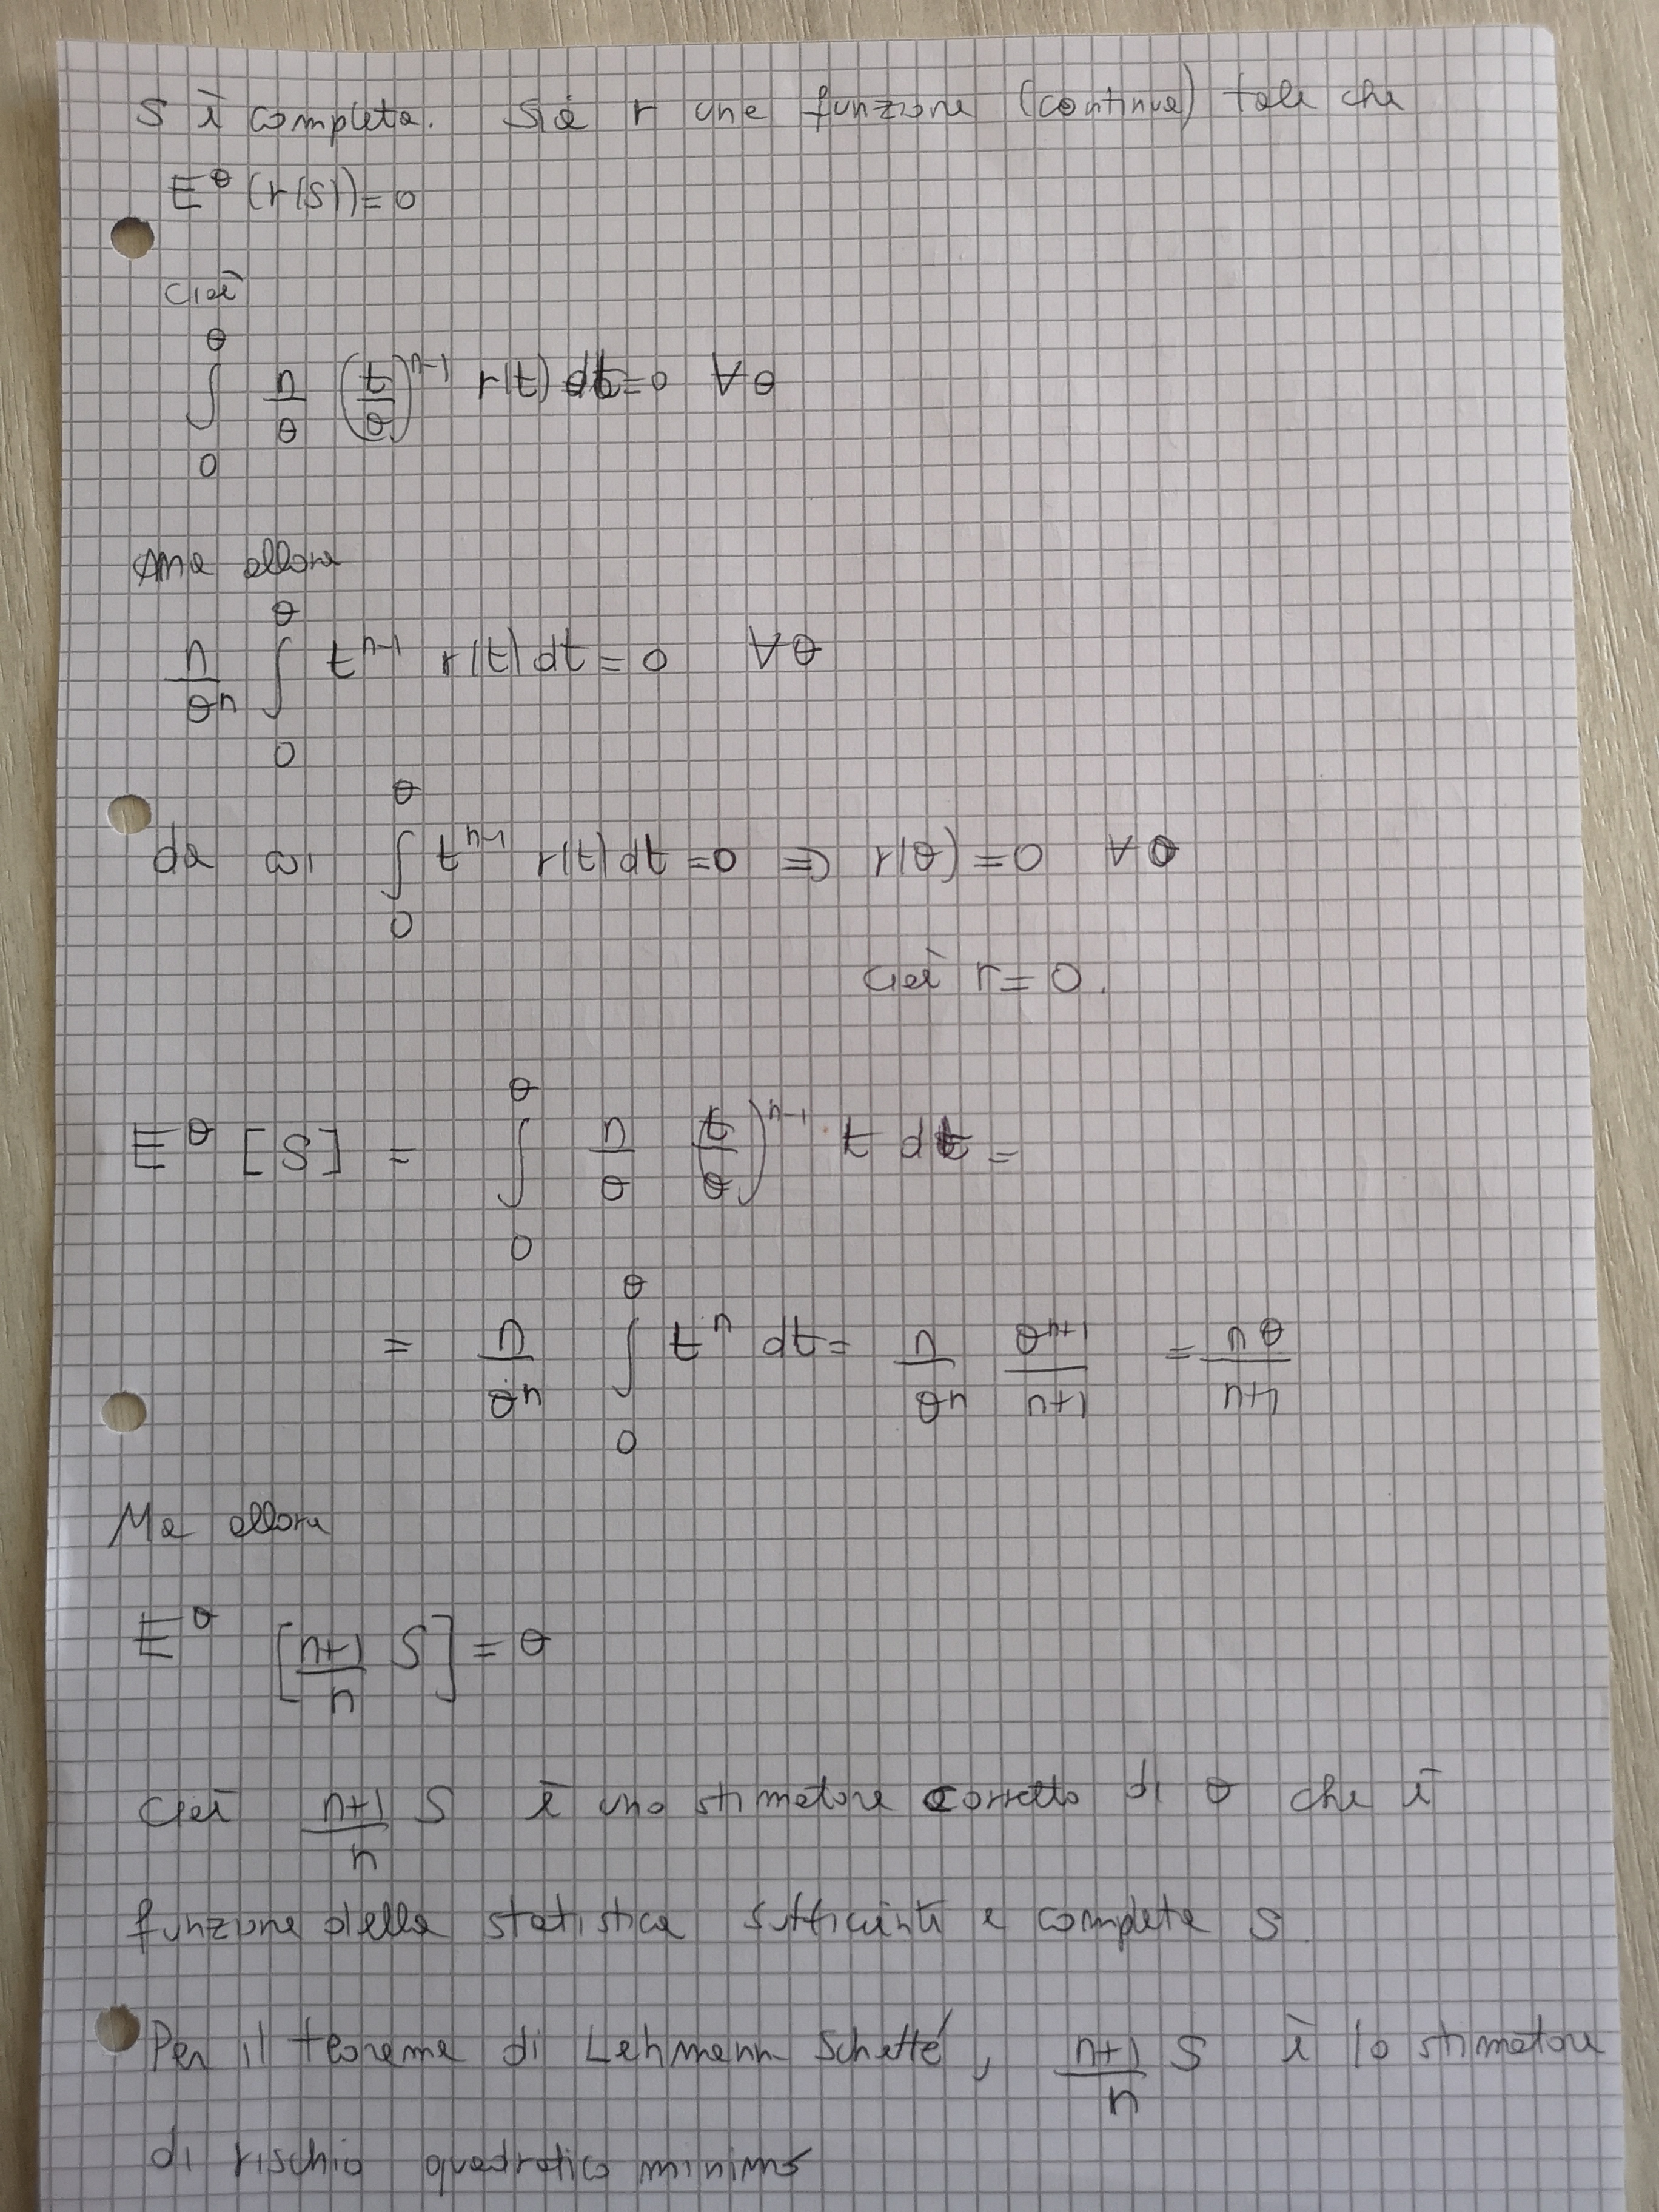 S è completa. Sia r una funzione (continua) tale che
E^θ (r(S)) = 0
cioè
∫_0^θ n/θ (t/θ)^{n-1} r(t) dt = 0 ∀ θ
Ma allora
n/θ^n ∫_0^θ t^{n-1} r(t) dt = 0 ∀ θ
da cui ∫_0^θ t^{n-1} r(t) dt = 0 ⇒ r(θ) = 0 ∀ θ
cioè r = 0.
E^θ [S] = ∫_0^θ n/θ (t/θ)^{n-1} · t dt =
= n/θ^n ∫_0^θ t^n dt = n/θ^n θ^{n+1}/n+1 = nθ/n+1
Ma allora
E^θ [n+1/n S] = θ
Cioè n+1/n S è uno stimatore corretto di θ che è
funzione della statistica sufficiente e completa S
Per il teorema di Lehmann Scheffé, n+1/n S è lo stimatore
di rischio quadratico minimo